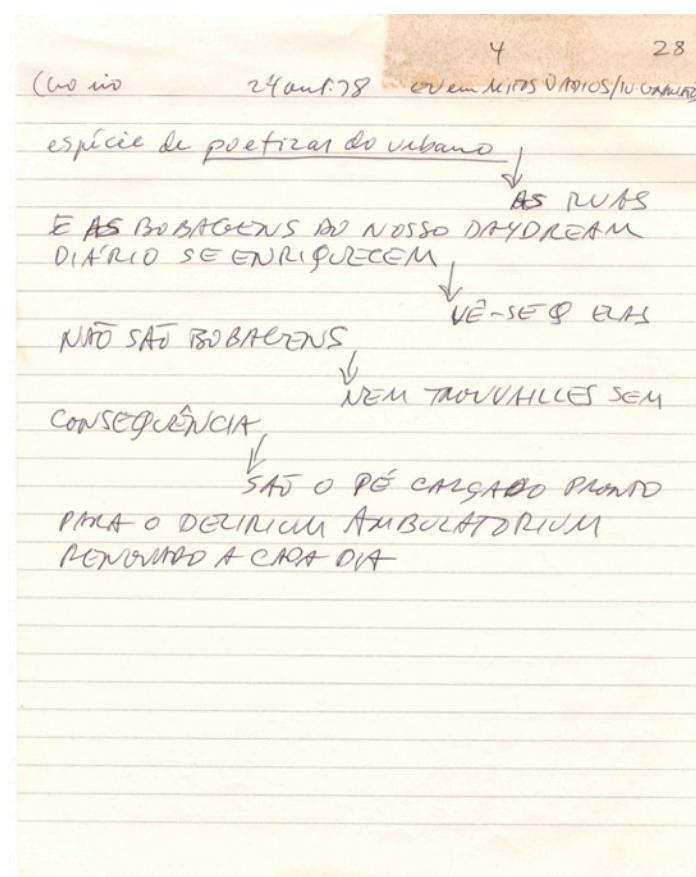 4 28
(HO rio 24 out. 78 EU em MITOS VADIOS/IV.
espécie de poetizar do urbano
AS RUAS
E AS BOBAGENS DO NOSSO DAYDREAM
DIÁRIO SE ENRIQUECEM
VÊ-SE Q ELAS
NÃO SÃO BOBAGENS
NEM TROUVAILLES SEM
CONSEQUÊNCIA
SÃO O PÉ CALÇADO PRONTO
PARA O DELIRIUM AMBULATORIUM
RENOVADO A CADA DIA